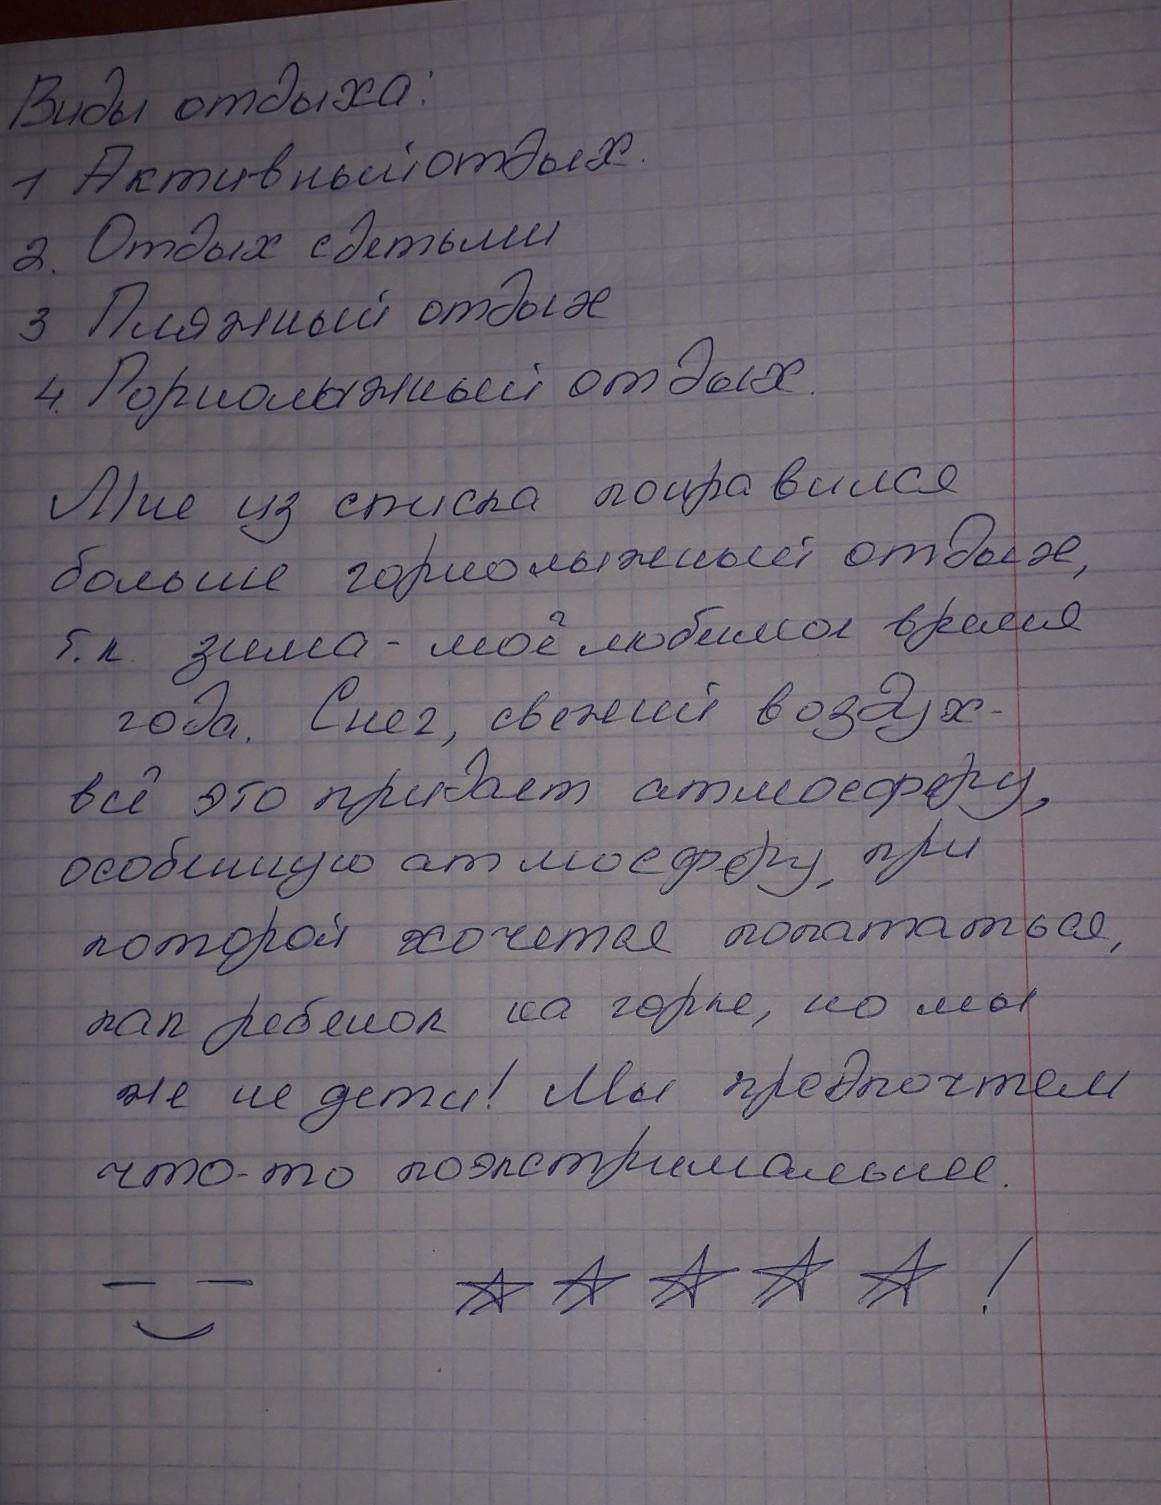 Виды отдыха:
1 Активный отдых.
2. Отдых с детьми
3 Пляжный отдых
4. Горнолыжный отдых.
Мне из списка понравился
больше горнолыжный отдых,
т.к. зима - моё любимое время
года. Снег, свежий воздух -
всё это придает атмосферу,
особенную атмосферу, при
которой хочется покататься,
как ребенок на горке, но мы
же не дети! Мы предпочтем
что-то поэкстримальнее.
!